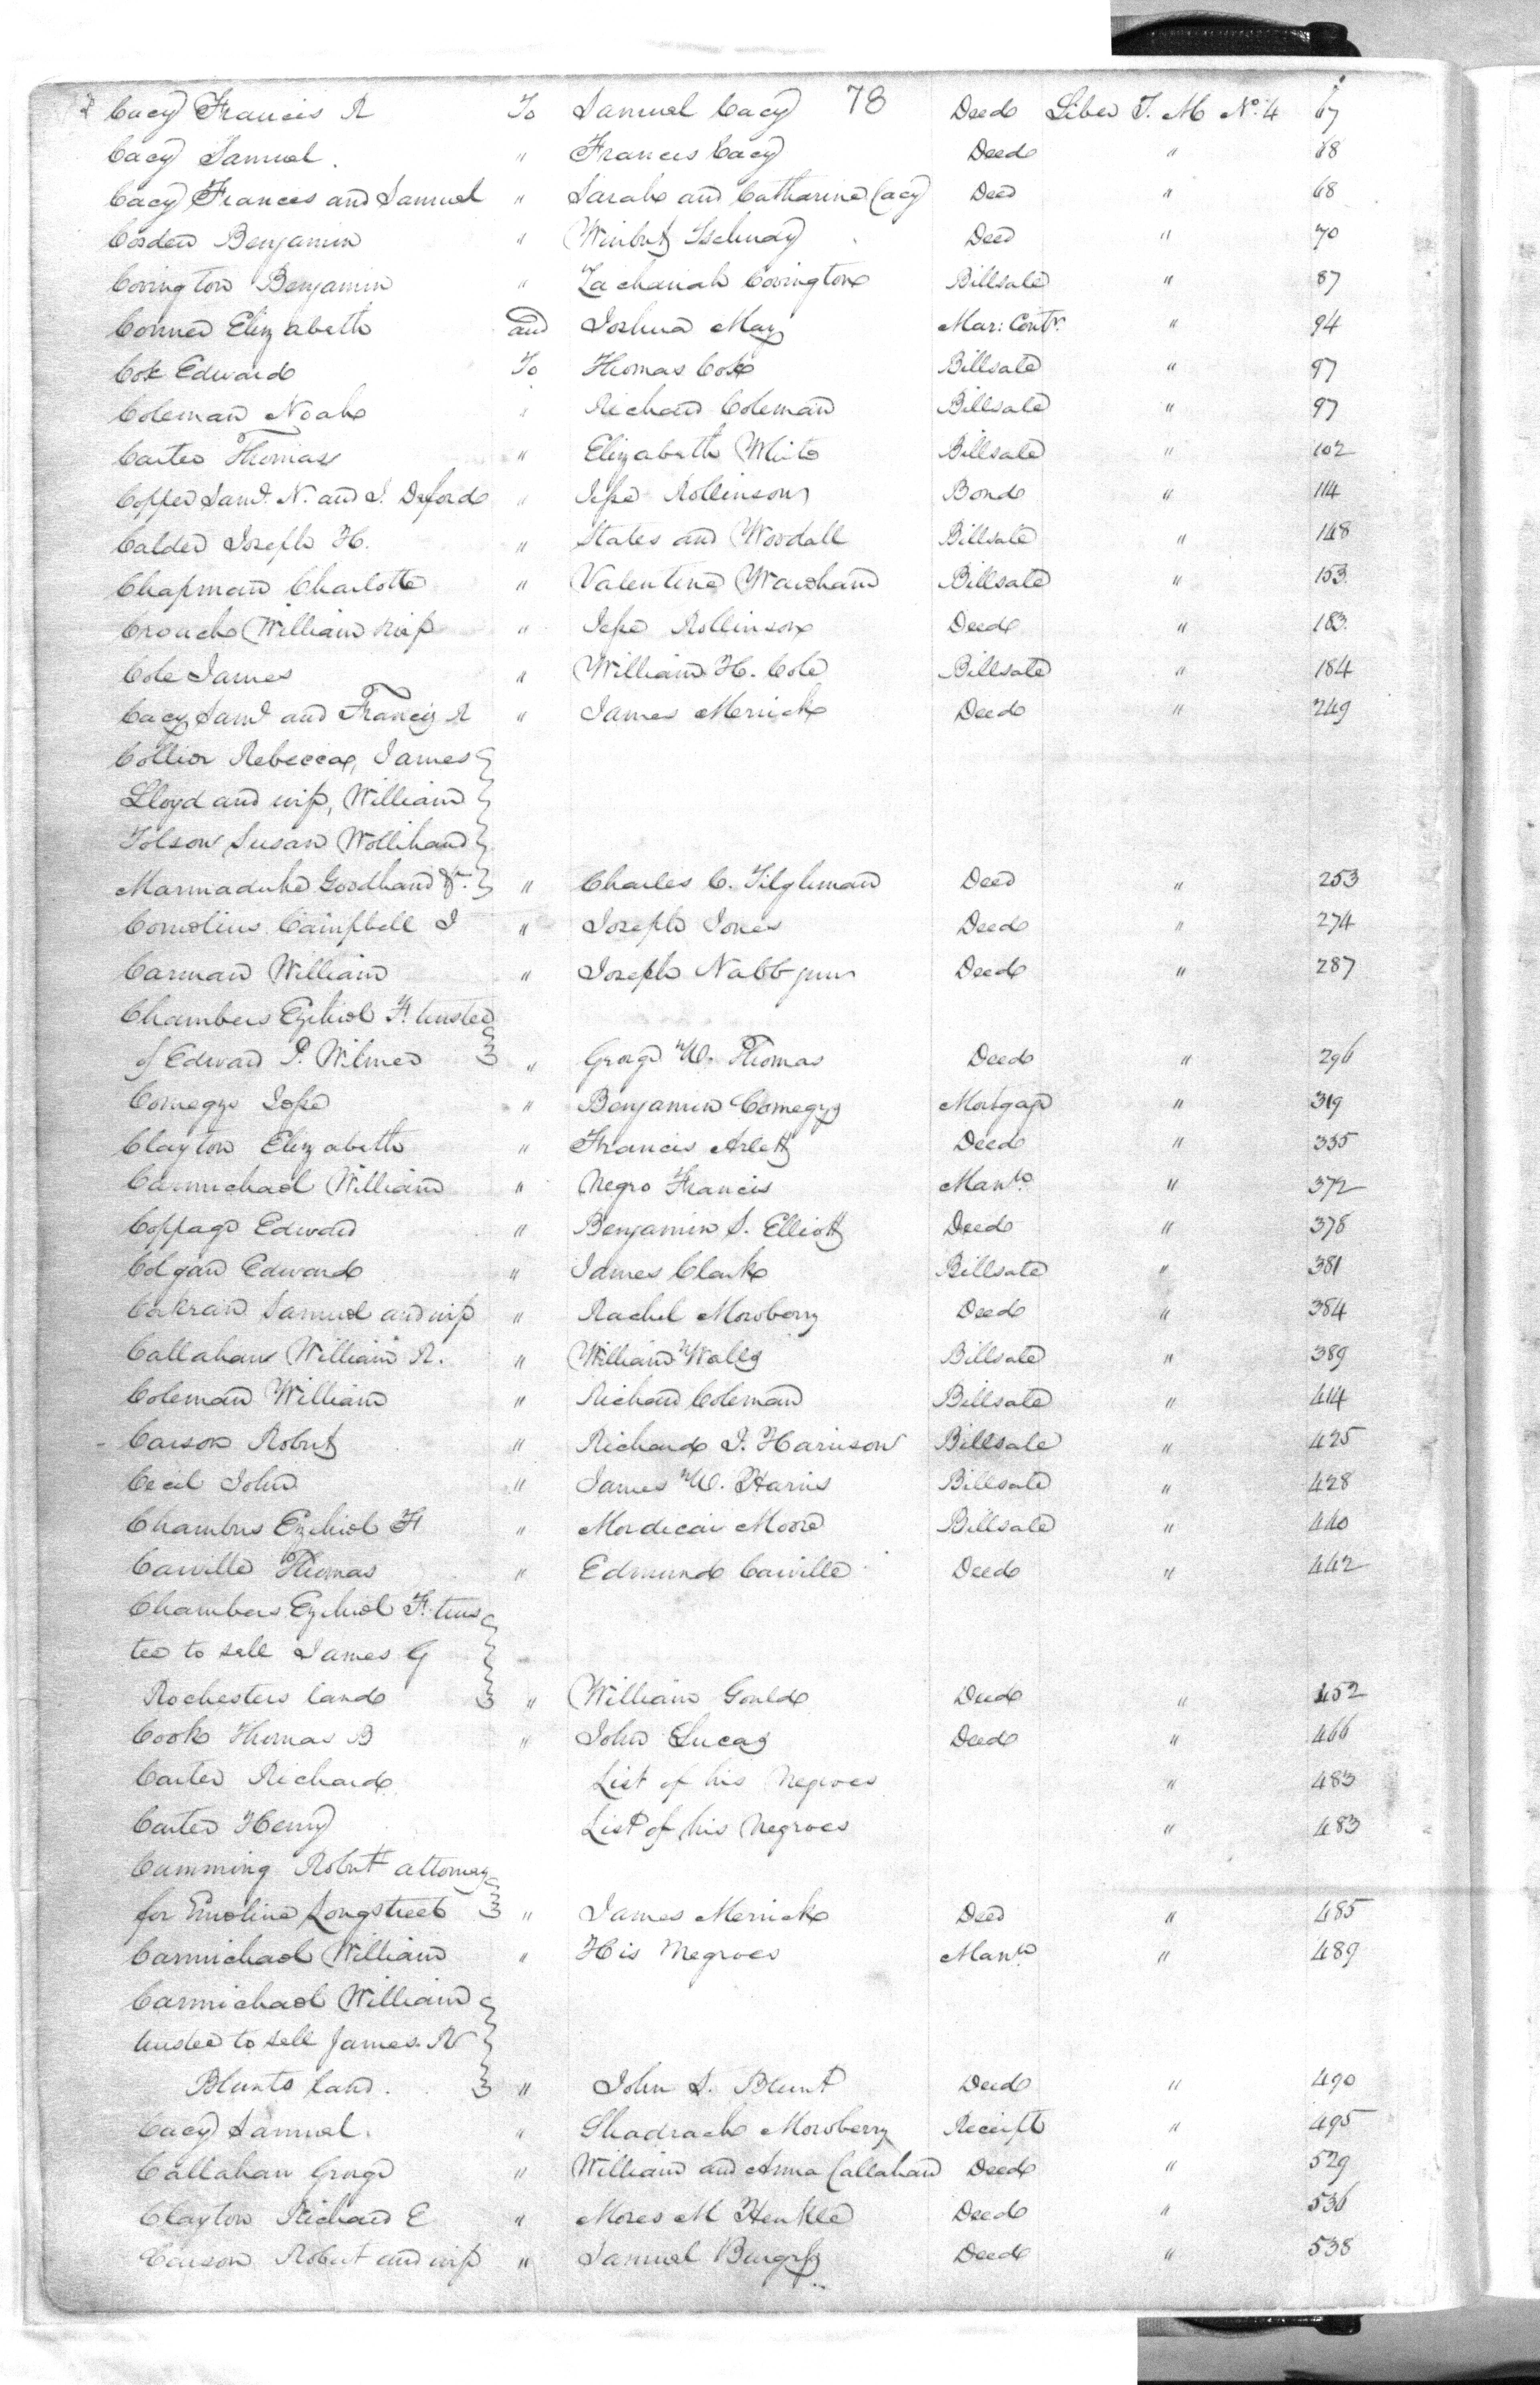 Cacy Francis R To Samuel Cacy 78 Deed Liber T. M No. 4 67
Cacy Samuel. " Francis Cacy Deed " 68
Cacy Francis and Samuel " Sarah and Catharine Cacy Deed " 68
Cosden Benjamin " Deed " 70
Covington Benjamin " Zachariah Covington Billsale " 87
Conner Elizabeth and Joshua May Mar: Contr. " 94
Cox Edward To Thomas Cox Billsale " 97
Coleman Noah " Richard Coleman Billsale " 97
Carter Thomas " Elizabeth White Billsale " 102
Copper Saml. N. and I. Deford " Jesse Rollinson Bond " 114
Calder Joseph H. " States and Woodall Billsale " 148
Chapman Charlotte " Valentine Wareham Billsale " 153
Crouch William wife " Jesse Rollinson Deed " 183
Cole James " William H. Cole Billsale " 184
Cacy Saml and Francis R " James Merrick Deed " 249
Collier Rebecca, James
Lloyd and wife, William
Tolson Susan
Marmaduke Goodhand &c. " Charles C. Tilghman Deed " 253
Cornelius Campbell I " Joseph Jones Deed " 274
Carman William " Joseph Nabb jun Deed " 287
Chambers Ezekiel F. trustee
of Edward P. Wilmer " George W. Thomas Deed " 296
Comegys Jesse " Benjamin Comegys Mortgage " 319
Clayton Elizabeth " Francis Arlett Deed " 335
Carmichael William " Negro Francis Manto " 372
Coppage Edward " Benjamin S. Elliott Deed " 378
Colgan Edward " James Clark Billsale " 381
Corkran Samuel and wife " Rachel Mowberry Deed " 384
Callahan William R. " William Walls Billsale " 389
Coleman William " Richard Coleman Billsale " 414
Carson Robert " Richard I. Harrison Billsale " 425
Cecil John " James W. Harris Billsale " 428
Chambers Ezekiel F " Mordecai Moore Billsale " 440
Carville Thomas " Edmund Carville Deed " 442
Chambers Ezekiel F. trus
tee to sell James G
Rochesters land " William Gould Deed " 452
Cook Thomas B " John Lucas Deed " 466
Carter Richard List of his Negroes " 483
Carter Henry List of his Negroes " 483
Cumming Robert attorney
for Emeline Longstreet " James Merrick Deed " 485
Carmichael William " His Negroes Manto " 489
Carmichael William
trustee to sell James R
Blunts land. " John S. Blunt Deed " 490
Cacy Samuel. " Shadrach Mowberry Receipt " 495
Callahan George " William and Anna Callahan Deed " 529
Clayton Richard E " Moses M Henkle Deed " 536
Carson Robert and wife " Samuel Deed " 538